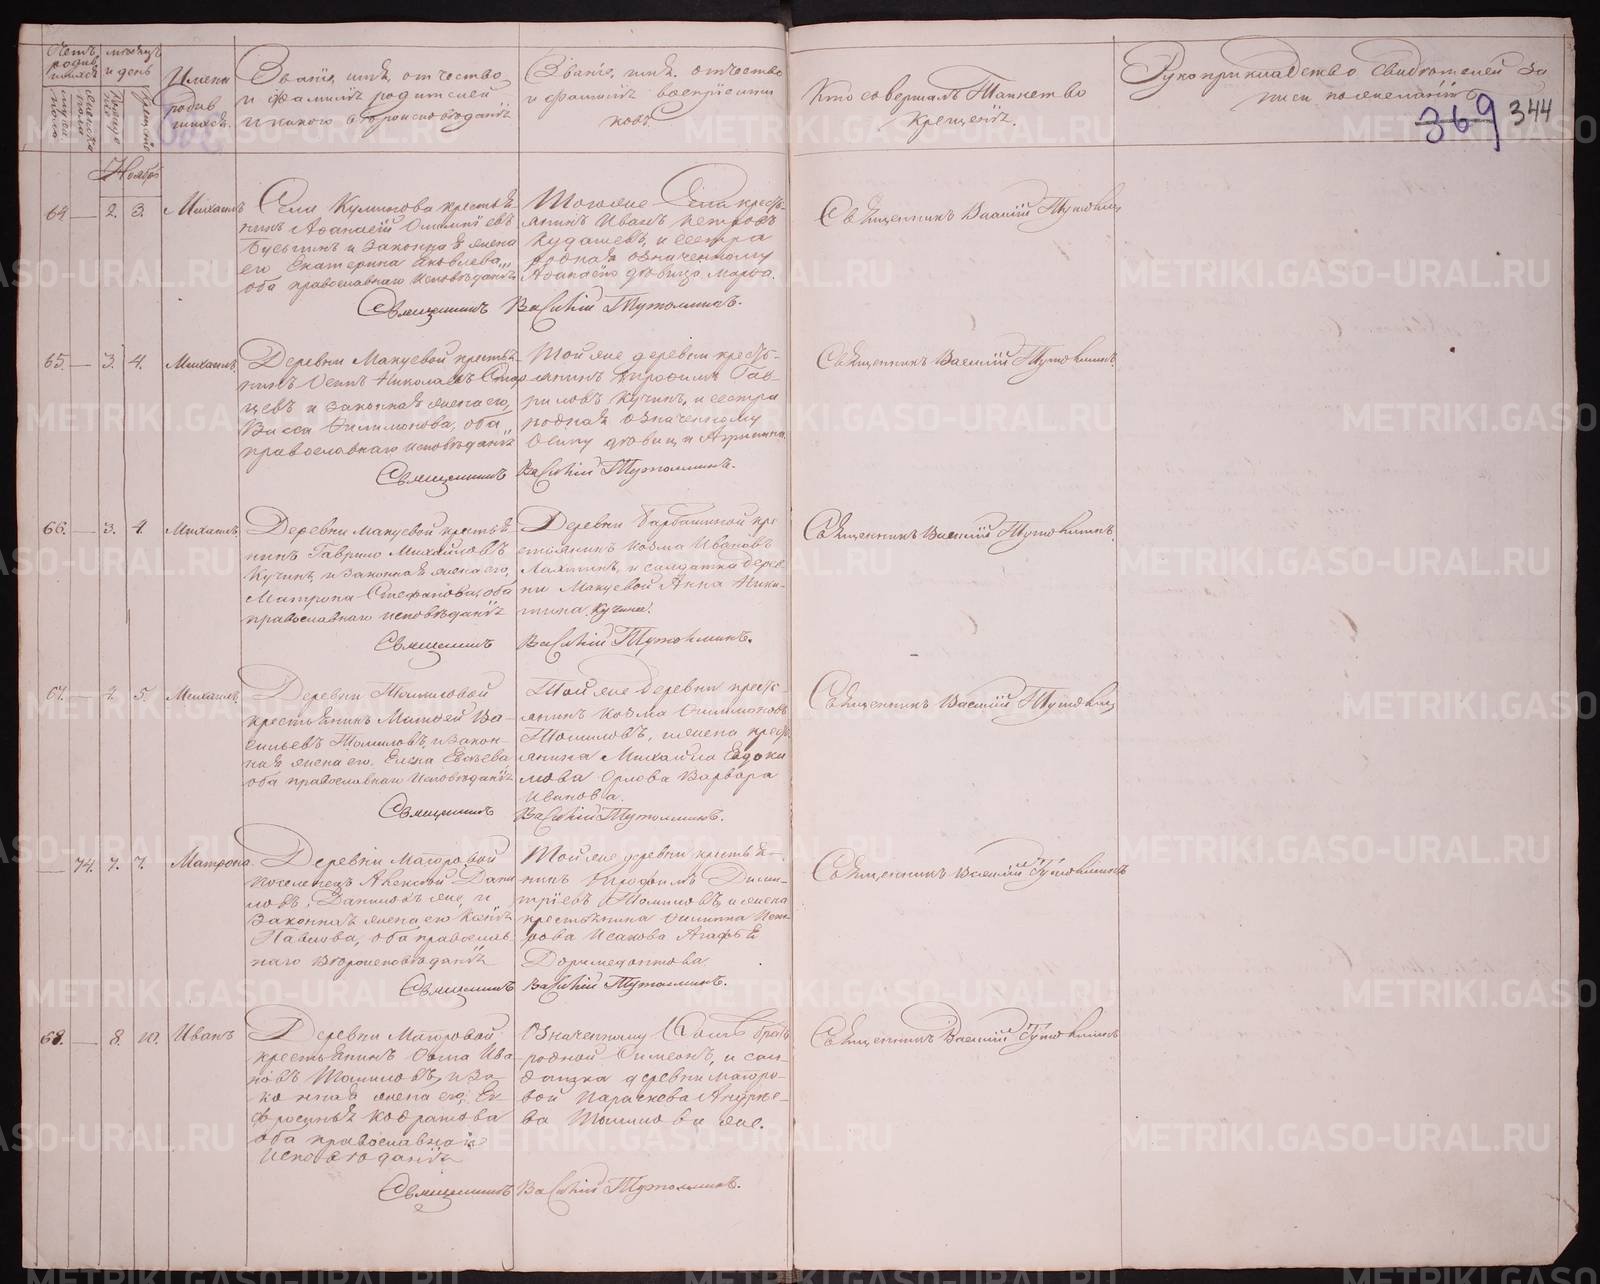 Счетъ родившихся
мужеска пола
женска пола
мѣсяцъ и день
рожденія
крещенія
Имена родившихся.
Званіе, имя, отчество и фамилія родителей и какого вѣроисповѣданія
Званіе, имя, отчество и фамилія воспріемниковъ.
Кто совершалъ Таинство крещенія.
Рукоприкладство свидѣтелей записи по желанію
369 344
Ноябрь
64 — 2. 3. Михаилъ
Села Куликова крестья-
нинъ Аѳанасій
и законная жена
его Екатерина Яковлева,
оба православнаго исповѣданія
Тогоже Села кресть-
янинъ Иванъ Петровъ
Кудашевъ, и сестра
родная означенному
Аѳанасію дѣвица Марѳа.
Священникъ Василій Тутолминъ.
Священникъ Василій Тутолминъ
65. — 3. 4. Михаилъ.
Деревни Макуевой крестья-
нинъ Осипъ Николаевъ Стар-
цевъ и законная жена его,
Васса Филимонова, оба
православнаго исповѣданія
Тойже деревни кресть-
янинъ Трофимъ Гав-
риловъ Кучинъ, и сестра
родная означенному
Осипу дѣвица Агрипина.
Священникъ Василій Тутолминъ.
Священникъ Василій Тутолминъ.
66. — 3. 4. Михаилъ.
Деревни Макуевой крестья-
нинъ Гаврило Михайловъ
Кучинъ, и законная жена его,
Матрона Стефанова, оба
православнаго исповѣданія
Деревни Барбашиной кре-
стьянинъ Козма Ивановъ
и солдатка дерев-
ни Макуевой Анна Ники-
тина Кучина.
Священникъ Василій Тутолминъ.
Священникъ Василій Тутолминъ.
67. — 5. Михаилъ.
Деревни Томиловой
крестьянинъ Матвей Ва-
сильевъ Томиловъ, и закон-
ная жена его Елена
оба православнаго исповѣданія
Тойже деревни кресть-
янинъ Козма Филимоновъ
Томиловъ, и жена кресть-
янина Михайла Евдоки-
мова Орлова Варвара
Иванова.
Священникъ Василій Тутолминъ.
Священникъ Василій Тутолминъ
— 74. 7. 7. Матрона.
Деревни
поселенецъ Алексѣй Дани-
ловъ, Даниловъ же, и
законная жена его
Павлова, оба православ-
наго вѣроисповѣданія
Тойже деревни крестья-
нинъ Трофимъ Дими-
тріевъ Томиловъ, и жена
крестьянина Филиппа
Исакова Агафья
Доримедонтова.
Священникъ Василій Тутолминъ.
Священникъ Василій Тутолминъ
68. — 8. 10. Иванъ
Деревни
крестьянинъ Ѳома Ива-
новъ Томиловъ, и за-
конная жена его, Ев-
фросинья Кодратова
оба православнаго
исповѣданія
Означенному Ѳомѣ братъ
родной Симеонъ, и сол-
датка деревни
Параскева Андрее-
ва Томилова же.
Священникъ Василій Тутолминъ.
Священникъ Василій Тутолминъ
METRIKI.GASO-URAL.RU